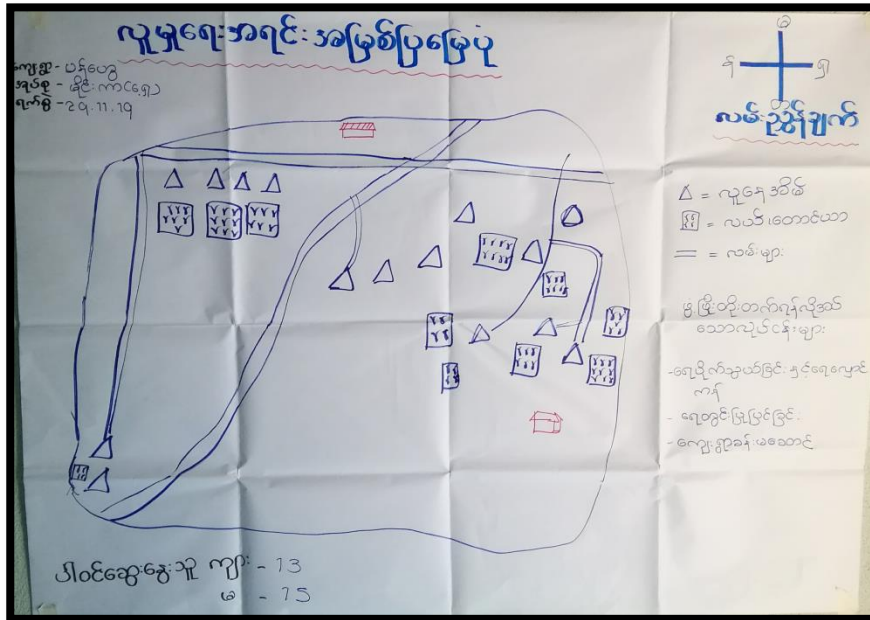 လူမှုရေးအရင်းအမြစ်ပြမြေပုံ
ကျေးရွာ - ပန်ဟွေ
အုပ်စု - မိုင်းကာ(ရှေ့)
ရက်စွဲ - 29.11.19
မ
န ရှ
တ
လမ်းညွှန်ချက်
= လူနေအိမ်
= လယ်/တောင်ယာ
= လမ်းများ
ဖွံ့ဖြိုးတိုးတက်ရန်လိုအပ်
သောလုပ်ငန်းများ
-ရေပိုက်သွယ်ခြင်းနှင့်ရေလှောင်
ကန်
- ရေတွင်းပြုပြင်ခြင်း
- ကျေးရွာခန်းမဆောင်
ပါဝင်ဆွေးနွေးသူ ကျား - 13
မ - 15